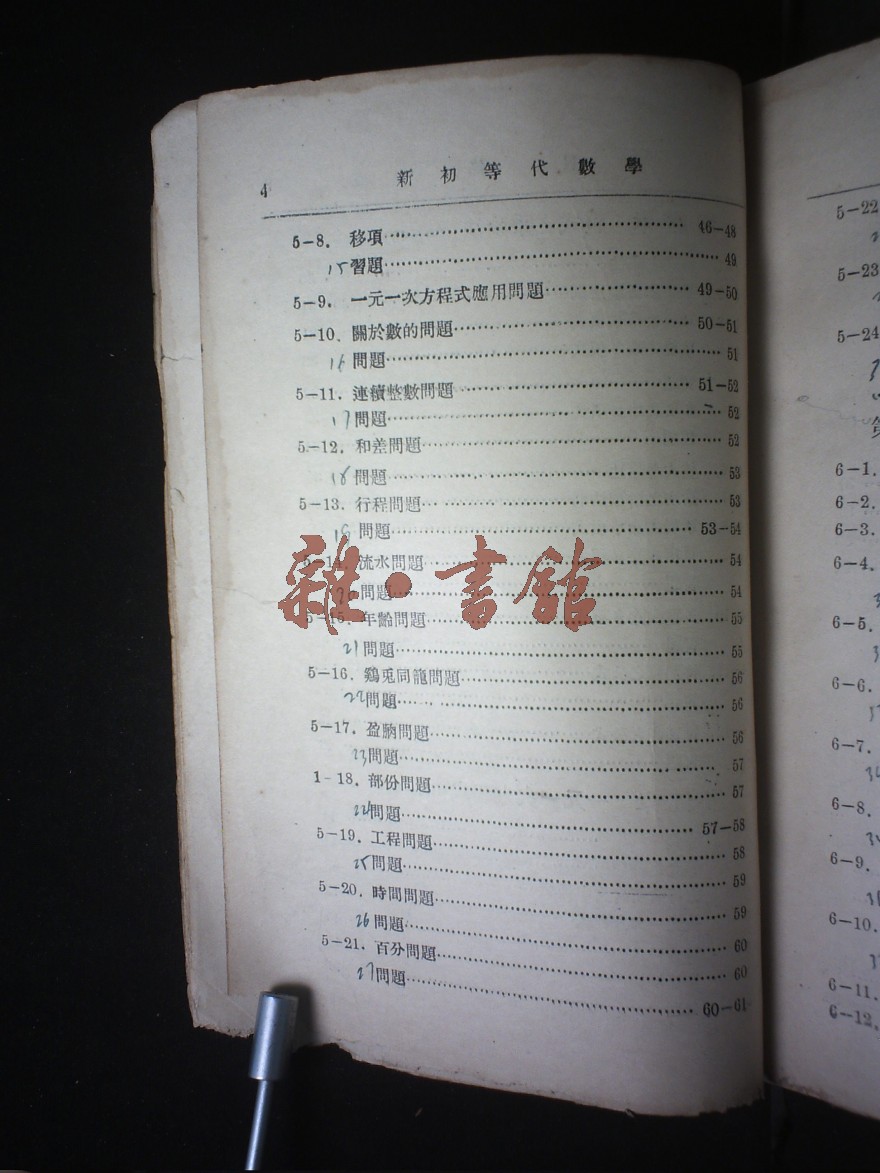 4 新初等代數學
5-8. 移項 46-48
15 習題 49
5-9. 一元一次方程式應用問題 49-50
5-10. 關於數的問題 50-51
16 問題 51
5-11. 連續整數問題 51-52
17 問題 52
5-12. 和差問題 52
18 問題 53
5-13. 行程問題 53
19 問題 53-54
5-14. 流水問題 54
問題 54
5-15. 年齡問題 55
21 問題 55
5-16. 鷄兎同籠問題 56
22 問題 56
5-17. 盈朒問題 56
23 問題 57
1-18. 部份問題 57
24 問題 57-58
5-19. 工程問題 58
25 問題 59
5-20. 時間問題 59
26 問題 60
5-21. 百分問題 60
27 問題 60-61
雜·書館
5-22
5-23
5-24
6-1.
6-2.
6-3.
6-4.
6-5.
6-6.
6-7.
6-8.
6-9.
6-10.
6-11.
6-12.